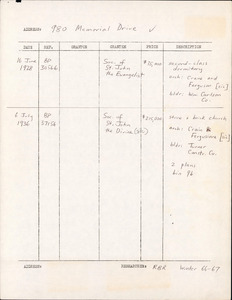 ADDRESS: 980 Memorial Drive ✓
DATE REF. GRANTOR GRANTEE PRICE DESCRIPTION
16 June BP Soc. of second-class
1928 St. John dormitory
the Evangelist arch: Cram and
Ferguson [sic]
bldr: Wm Carlson
Co.
6 July BP Soc. of stone & brick church
1936 St. John arch: Cram &
the Divine (sic) Fergusson [sic]
bldr: Turner
Constr. Co.
2 plans
bin 96
ADDRESS: RESEARCHER: RBR